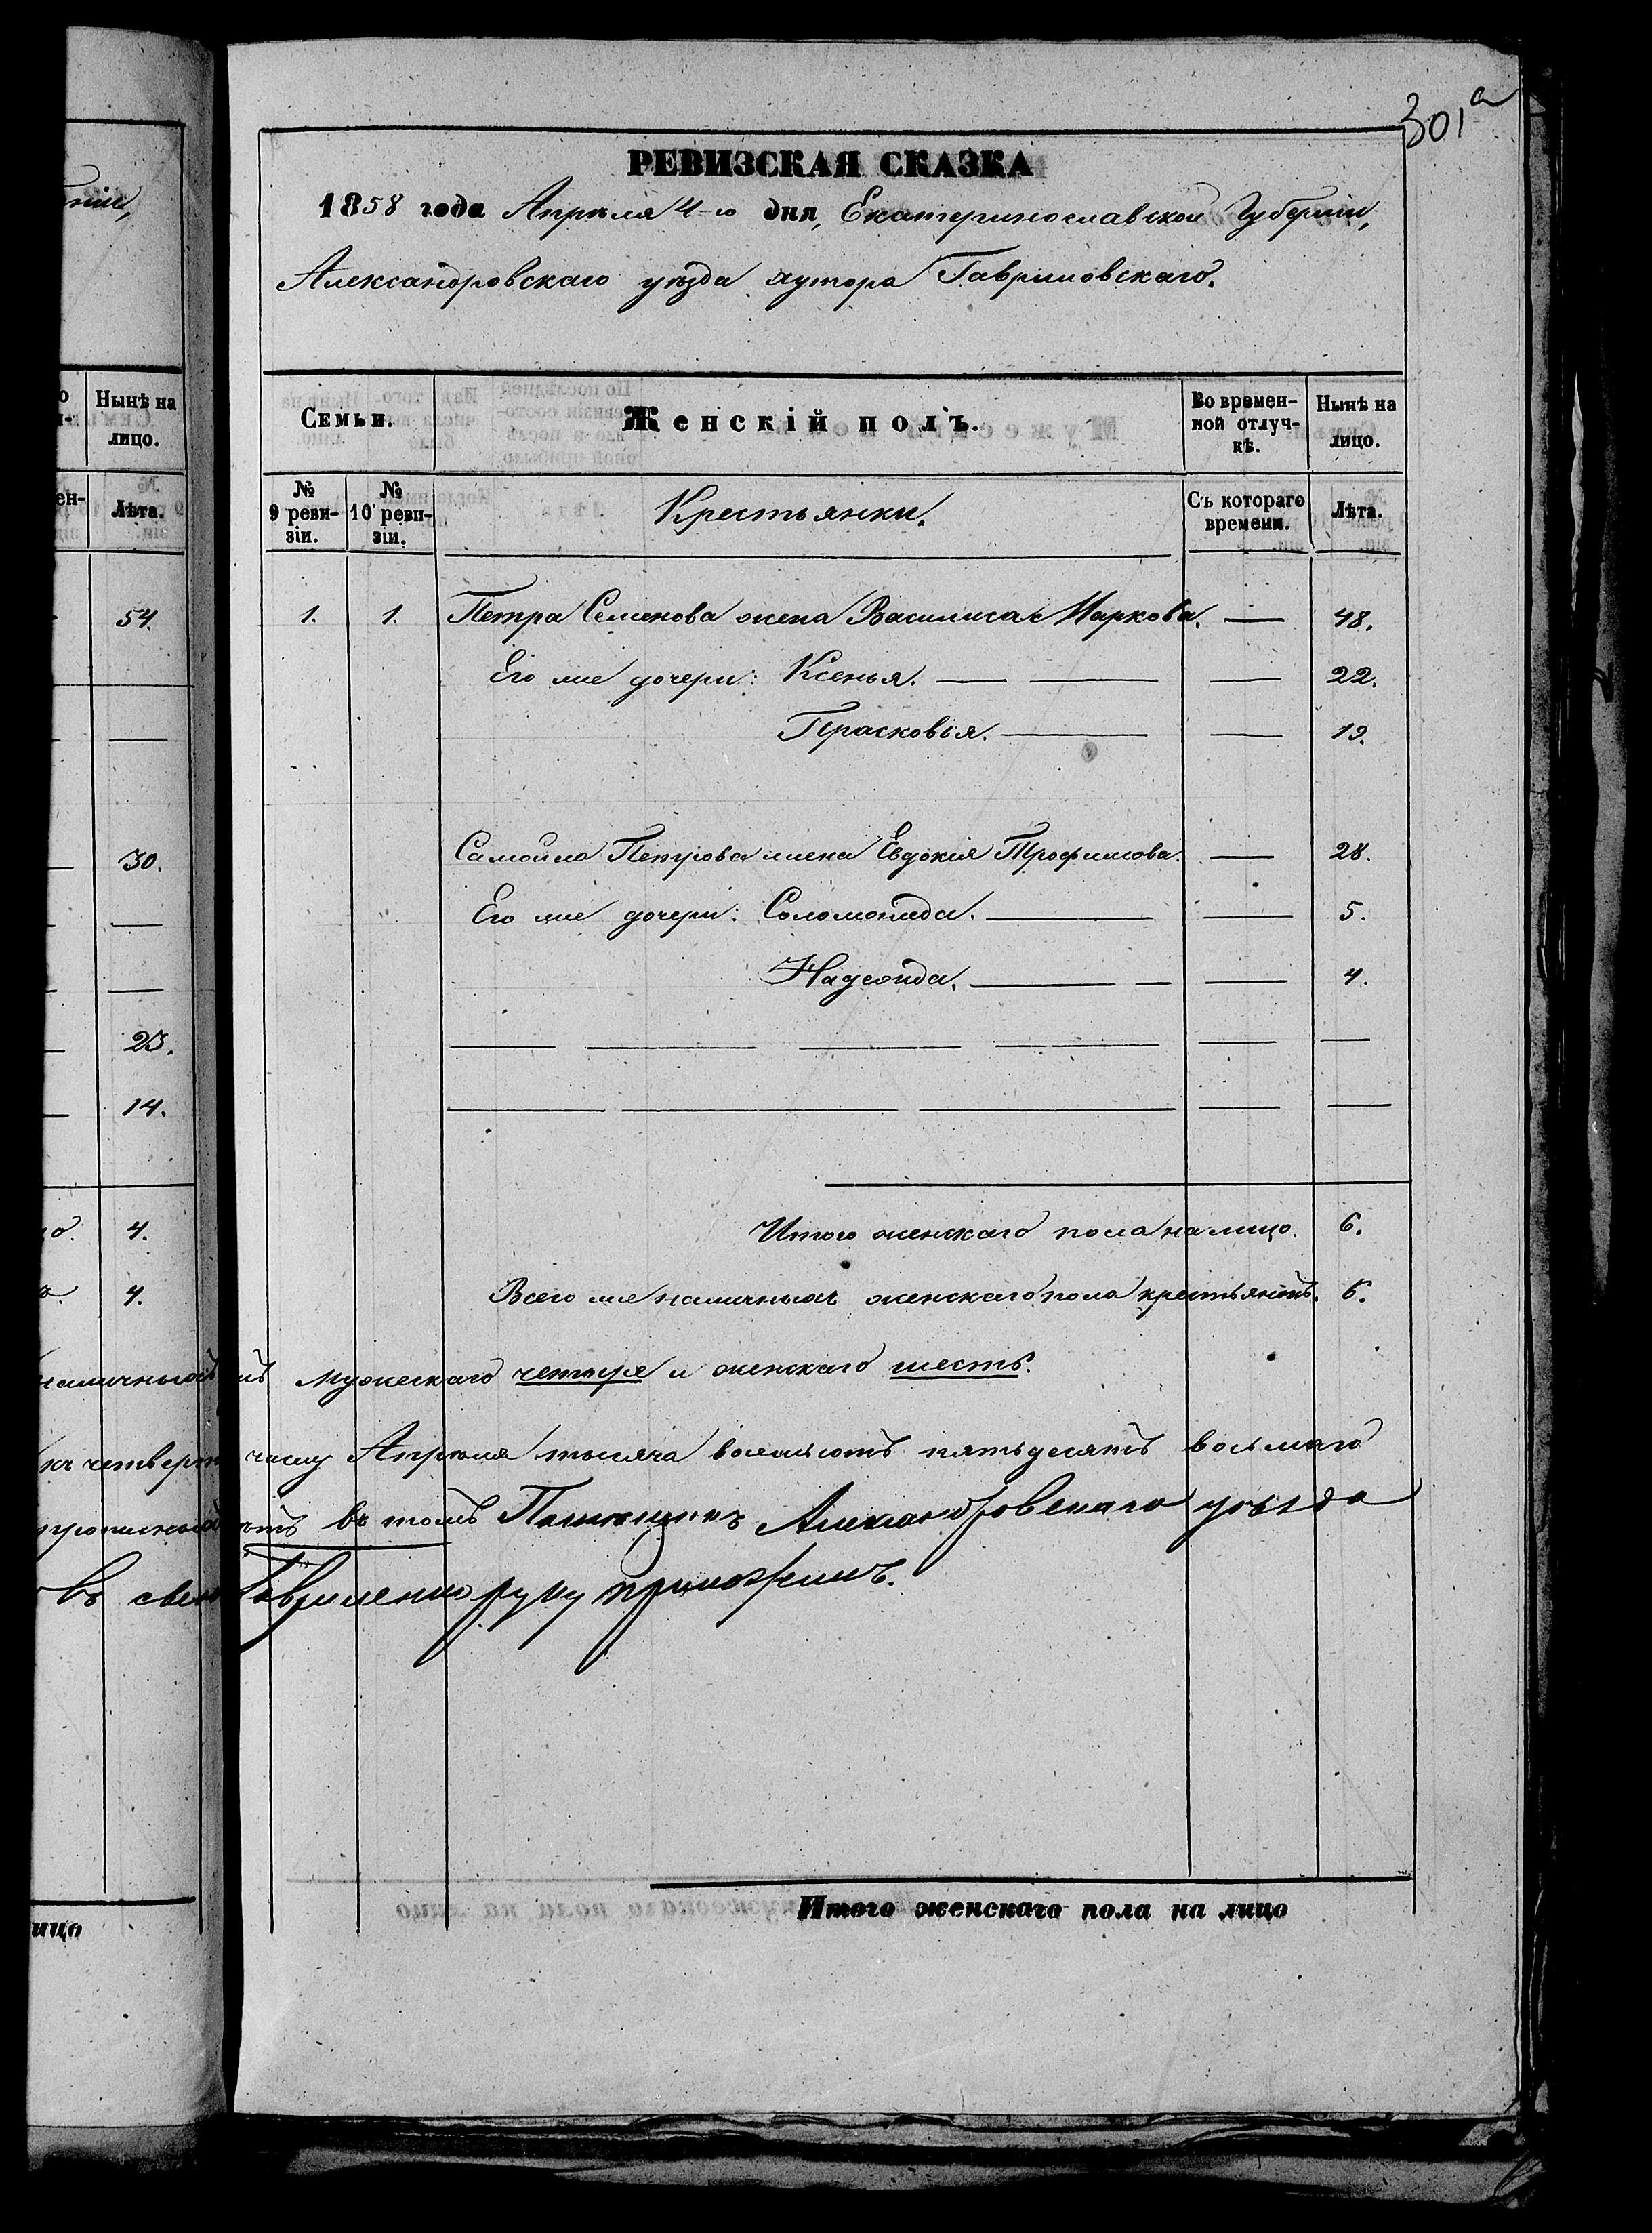 301а
РЕВИЗСКАЯ СКАЗКА
1858 года Апрѣля 4-го дня, Екатеринославской Губерніи,
Александровскаго уѣзда хутора Гавриловскаго.
Нынѣ на лицо.
Лѣта.
54.
30.
23.
14.
4.
4.
Семьи.
Женскій полъ.
Во времен-
ной отлуч-
кѣ.
Нынѣ на
лицо.
№
9 реви-
зіи.
№
10 реви-
зіи.
Крестьянки.
Съ котораго
времени.
Лѣта.
1. 1. Петра Семенова жена Василиса Маркова. — 48.
Его же дочери: Ксенья. — — — 22.
Прасковья. — — 19.
Самойла Петрова жена Евдокія Трофимова. — 28.
Его же дочери: Соломонида. — — 5.
Надежда. — — — 4.
Итого женскаго пола на лицо. 6.
Всего же наличныхъ женскаго пола крестьянокъ. 6.
наличныхъ мужескаго четыре и женскаго шесть.
къ четверт числу Апрѣля тысяча восемьсотъ пятьдесятъ восьмаго
въ томъ Помѣщикъ Александровскаго уѣзда
въ Гавриленко руку приложилъ.
Итого женскаго пола на лицо
ицо